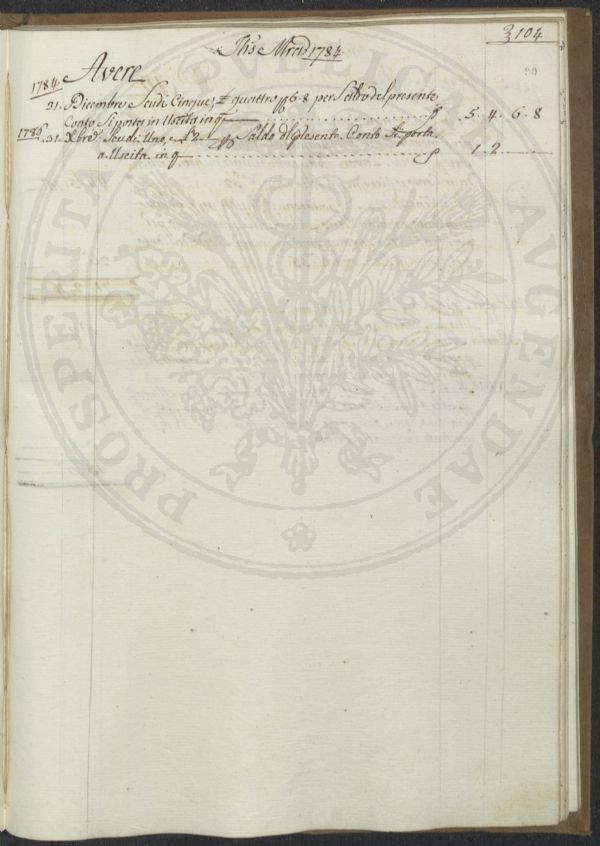 104
Jhs Mrcd 1784
1784 Avere
31. Dicembre Scudi Cinque, £ quattro, 6. 8 per Saldo del presente
Conto Si porta in Uscita in q° 5. 4. 6. 8
1786 31. Xbre. Scudi Uno, e £ 2 Saldo del presente Conto Si porta
a Uscita in q° 1. 2
PROSPERITATI PVBLICAE AVGENDAE